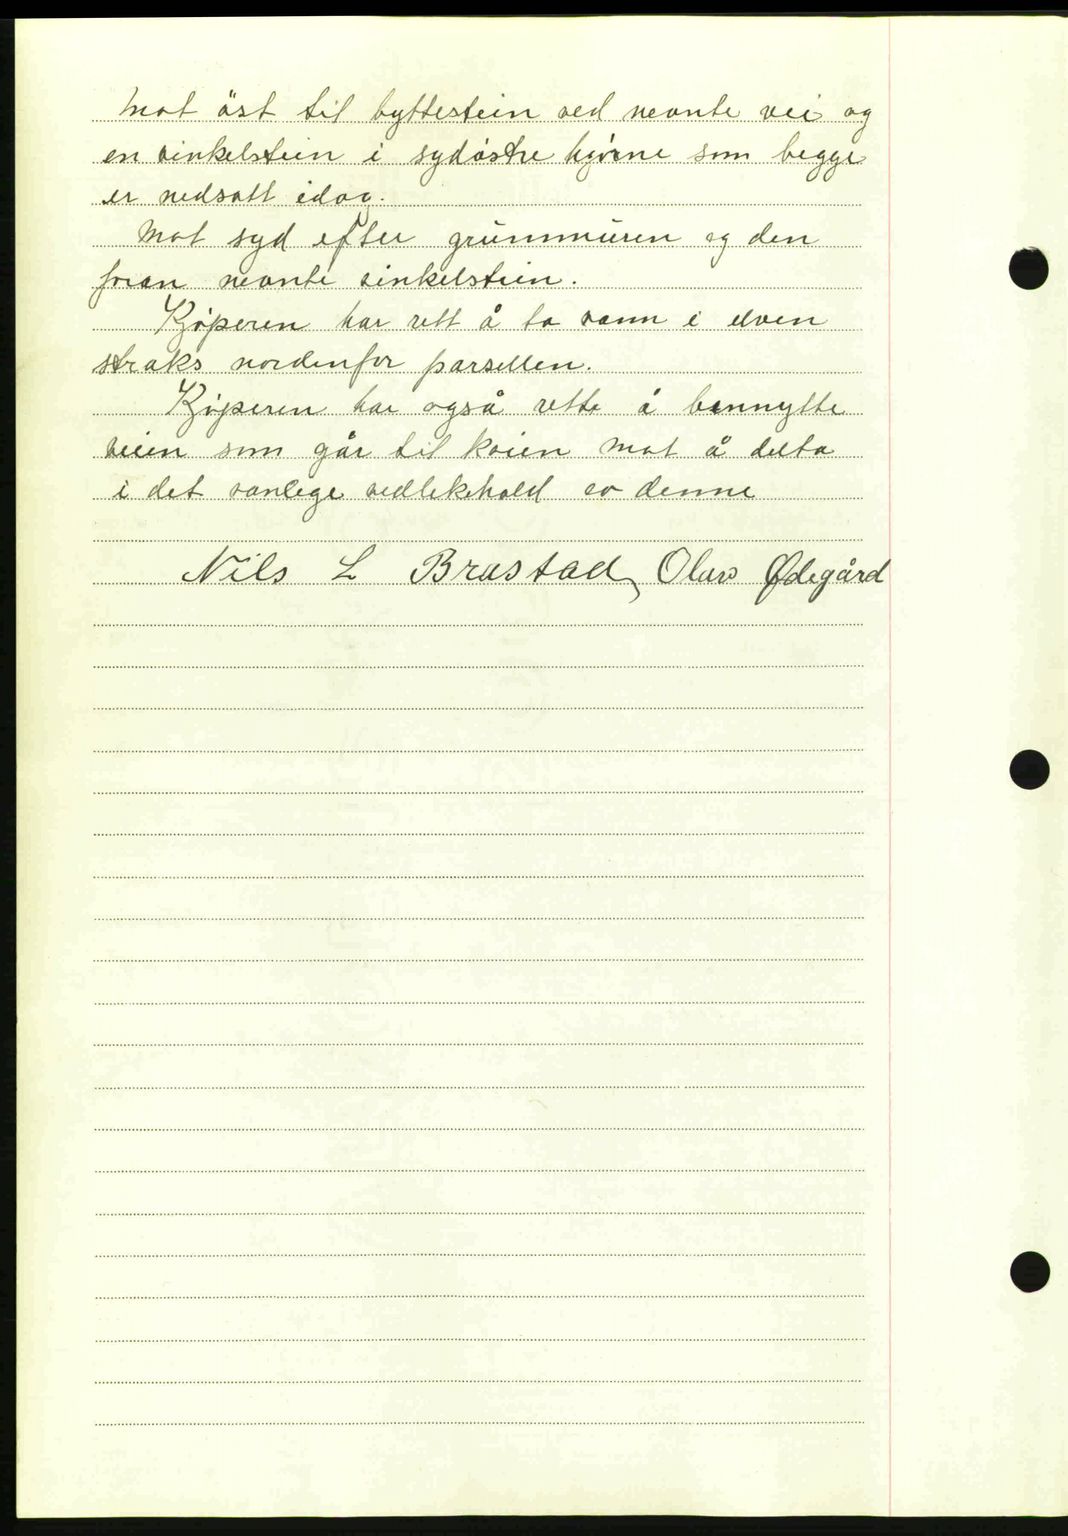 Mot öst til byttestein ved nevnte vei og
en vinkelstein i sydöstre hjörne som begge
er nedsatt idag.
Mot syd efter grunnmuren og den
foran nevnte vinkelstein.
Kjøperen har rett å ta vann i elven
straks nordenfor parsellen.
Kjøperen har også rette å bennytte
veien som går til kaien mot å delta
i det vanlege vedlikehold av denne
Nils L Brustad, Olav Ødegård